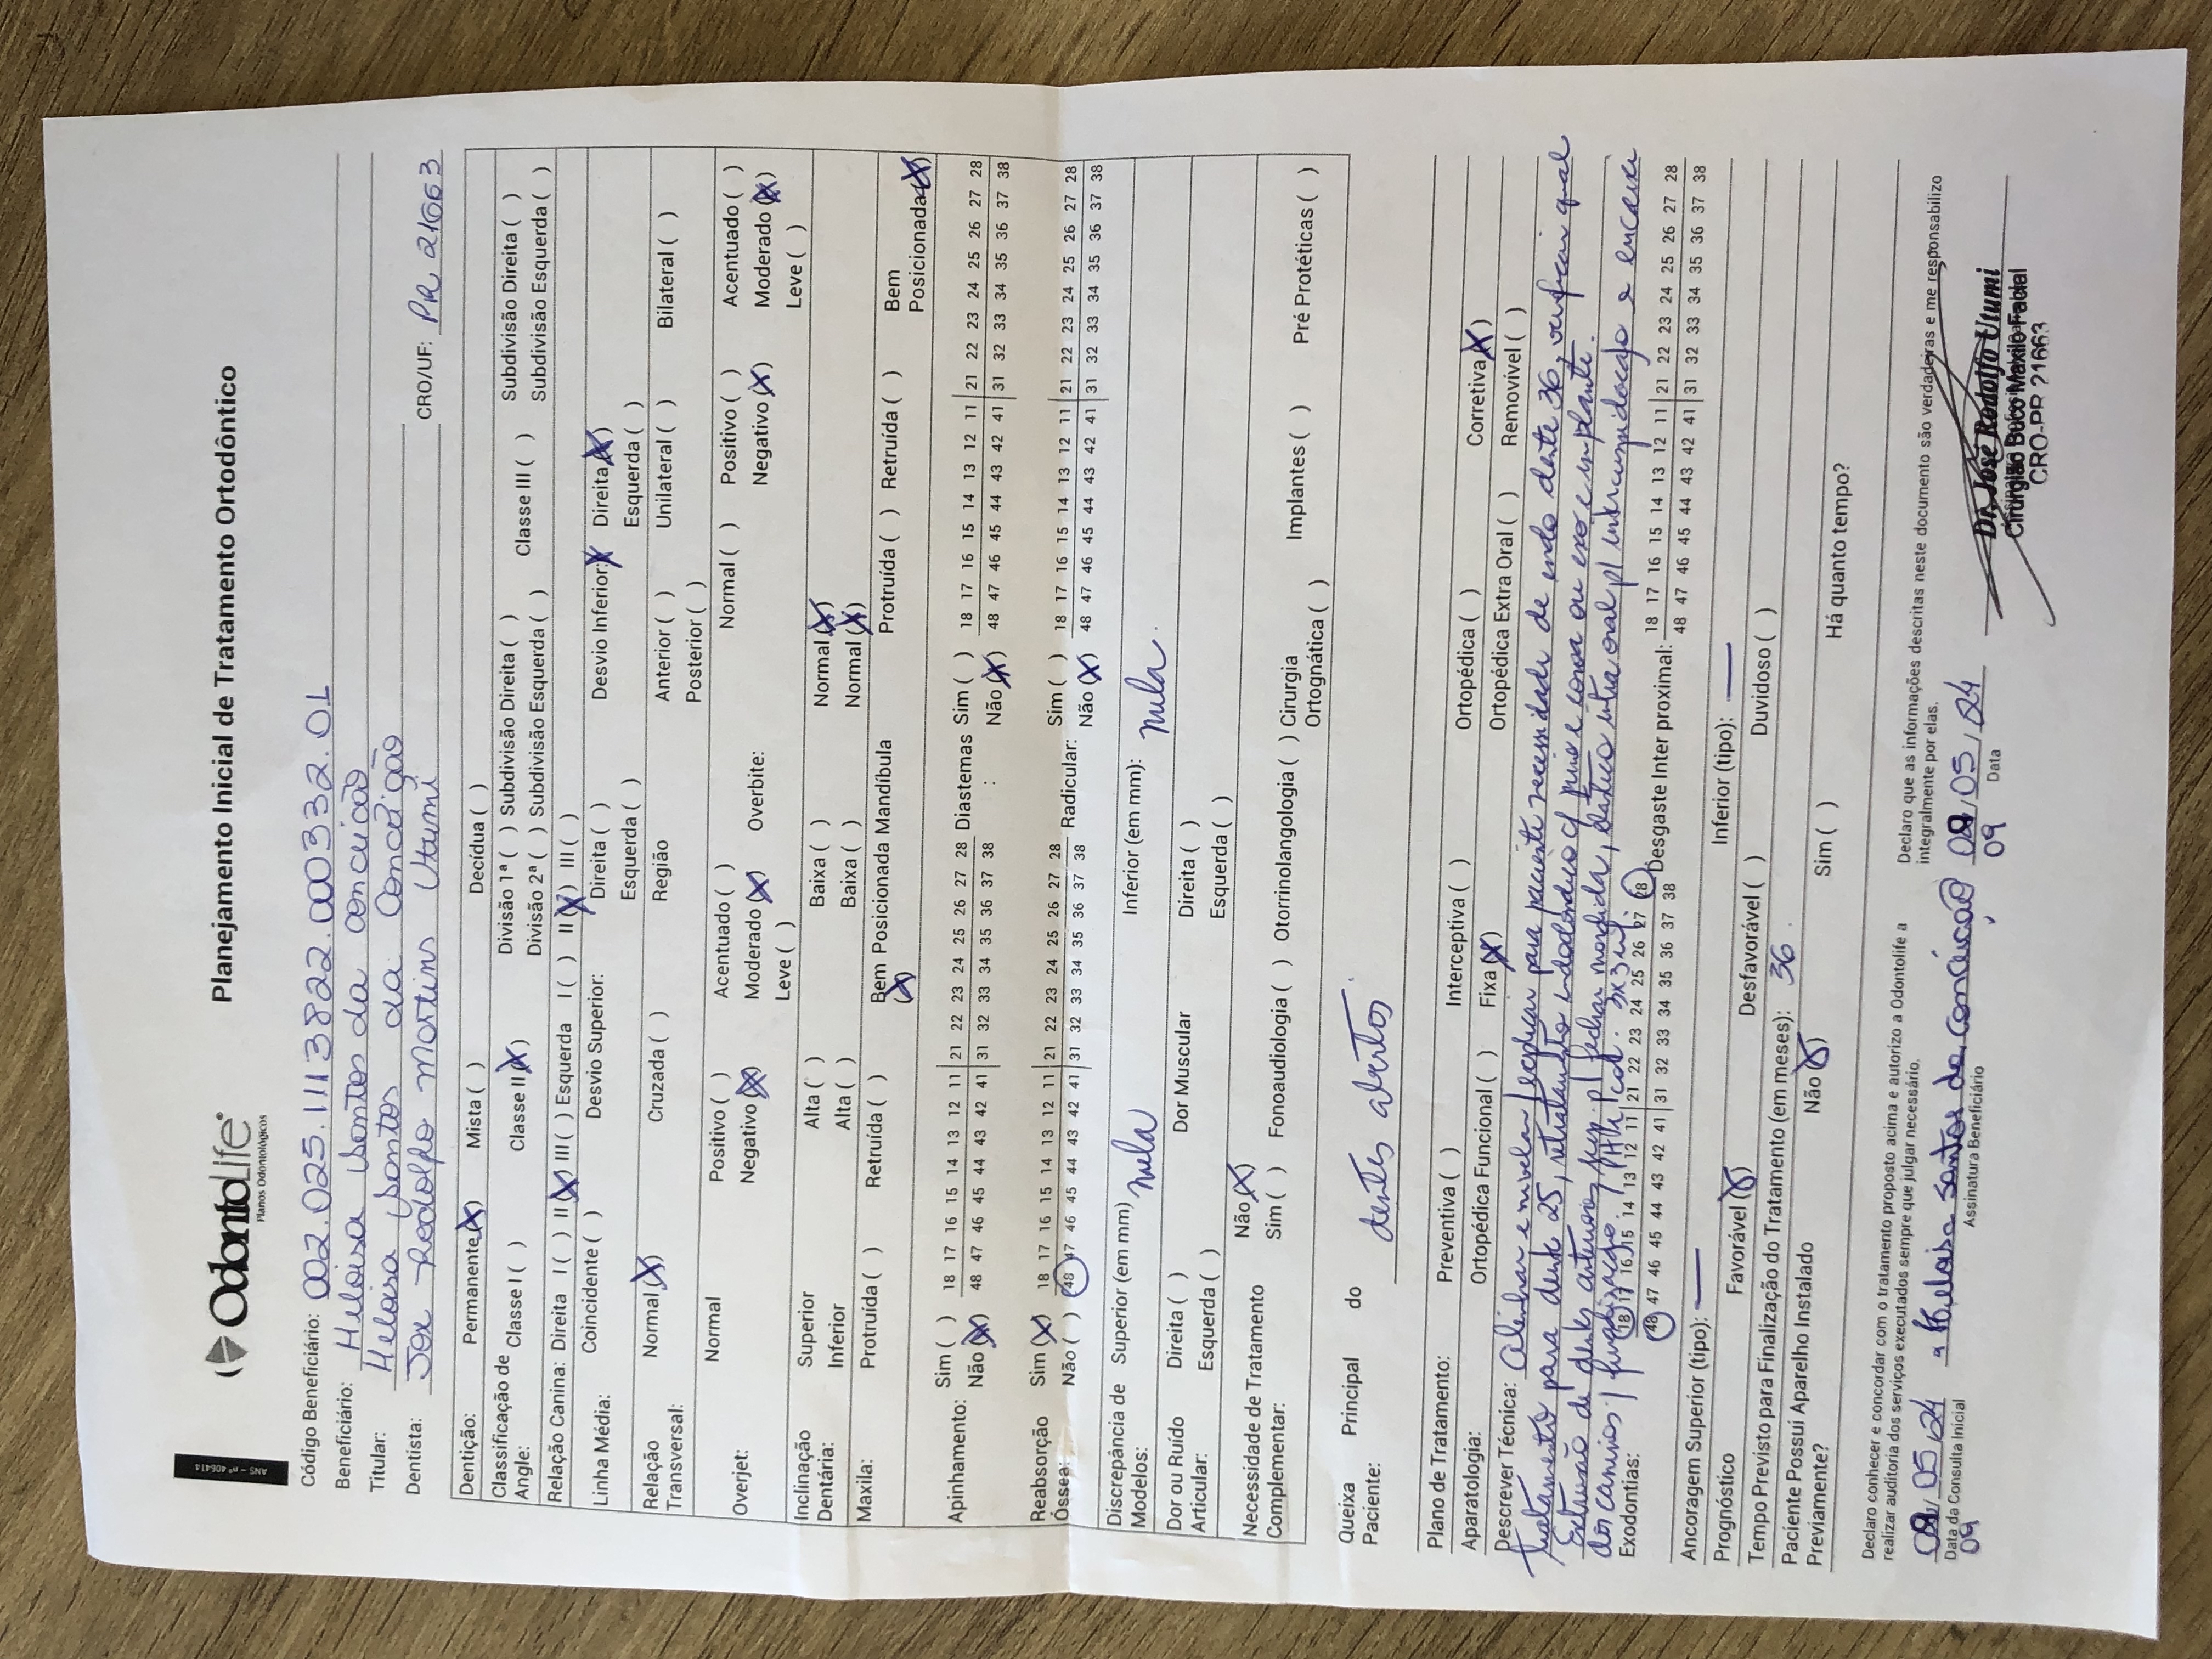 ANS - nº 406414
OdontoLife
Planos Odontológicos
Planejamento Inicial de Tratamento Ortodôntico
Código Beneficiário: 002.025.11113822.000332.01
Beneficiário: Heloisa Santos da conceicao
Titular: Heloisa Santos da Conceição
Dentista: Jose Rodolfo Martins Utumi CRO/UF: PR 21663
Dentição: Permanente (X) Mista ( ) Decídua ( )
Classificação de Angle: Classe I ( ) Classe II (X) Divisão 1ª ( ) Subdivisão Direita ( ) Classe III ( ) Subdivisão Direita ( )
Divisão 2ª ( ) Subdivisão Esquerda ( ) Subdivisão Esquerda ( )
Relação Canina: Direita I ( ) II (X) III ( ) Esquerda I ( ) II (X) III ( )
Linha Média: Coincidente ( ) Desvio Superior: Direita ( ) Desvio Inferior: X Direita (X)
Esquerda ( ) Esquerda ( )
Relação Transversal: Normal (X) Cruzada ( ) Região Anterior ( ) Unilateral ( ) Bilateral ( )
Posterior ( )
Overjet: Normal Positivo ( ) Acentuado ( ) Overbite: Normal ( ) Positivo ( ) Acentuado ( )
Negativo (X) Moderado (X) Negativo (X) Moderado (X)
Leve ( ) Leve ( )
Inclinação Dentária: Superior Alta ( ) Baixa ( ) Normal (X)
Inferior Alta ( ) Baixa ( ) Normal (X)
Maxila: Protruída ( ) Retruída ( ) Bem Posicionada (X) Mandíbula Protruída ( ) Retruída ( ) Bem Posicionada (X)
Apinhamento: Sim ( ) 18 17 16 15 14 13 12 11 | 21 22 23 24 25 26 27 28 Diastemas : Sim ( ) 18 17 16 15 14 13 12 11 | 21 22 23 24 25 26 27 28
Não (X) 48 47 46 45 44 43 42 41 | 31 32 33 34 35 36 37 38 Não (X) 48 47 46 45 44 43 42 41 | 31 32 33 34 35 36 37 38
Reabsorção Óssea: Sim (X) 18 17 16 15 14 13 12 11 | 21 22 23 24 25 26 27 28 Radicular: Sim ( ) 18 17 16 15 14 13 12 11 | 21 22 23 24 25 26 27 28
Não ( ) 48 47 46 45 44 43 42 41 | 31 32 33 34 35 36 37 38 Não (X) 48 47 46 45 44 43 42 41 | 31 32 33 34 35 36 37 38
Discrepância de Modelos: Superior (em mm) nula Inferior (em mm): nula.
Dor ou Ruído Articular: Direita ( ) Dor Muscular Direita ( )
Esquerda ( ) Esquerda ( )
Necessidade de Tratamento Complementar: Não (X)
Sim ( ) Fonoaudiologia ( ) Otorrinolangologia ( ) Cirurgia Ortognática ( ) Implantes ( ) Pré Protéticas ( )
Queixa Principal do Paciente: dentes abertos
Plano de Tratamento: Preventiva ( ) Interceptiva ( ) Ortopédica ( ) Corretiva (X)
Aparatologia: Ortopédica Funcional ( ) Fixa (X) Ortopédica Extra Oral ( ) Removivel ( )
Descrever Técnica: Alinhar e nivelar / explicar para paciente necessidade de endo dente 36, verificar qual
tratamento para dente 25, retratamento endodôntico c/ pino e coroa ou exo e implante.
Extrusão de dentes anteriores sup. p/ fechar mordida, elástico intra oral p/ intercuspidação e encaixe
dos caninos / finalização.
Exodontias: 18 17 16 15 14 13 12 11 | 21 22 23 24 25 26 27 28 Desgaste Inter proximal: 18 17 16 15 14 13 12 11 | 21 22 23 24 25 26 27 28
48 47 46 45 44 43 42 41 | 31 32 33 34 35 36 37 38 48 47 46 45 44 43 42 41 | 31 32 33 34 35 36 37 38
Ancoragem Superior (tipo): — Inferior (tipo): —
Prognóstico Favorável (X) Desfavorável ( ) Duvidoso ( )
Tempo Previsto para Finalização do Tratamento (em meses): 36.
Paciente Possuí Aparelho Instalado Previamente? Não (X) Sim ( ) Há quanto tempo?
Declaro conhecer e concordar com o tratamento proposto acima e autorizo a Odontolife a
realizar auditoria dos serviços executados sempre que julgar necessário.
Declaro que as informações descritas neste documento são verdadeiras e me responsabilizo
integralmente por elas.
09/05/24 Heloisa santos da conceicao 09/05/24
Data da Consulta Inicial Assinatura Beneficiário Data
09 09
Dr. José Rodolfo Utumi
Cirurgião Buco Maxilo Facial
CRO-PR 21663